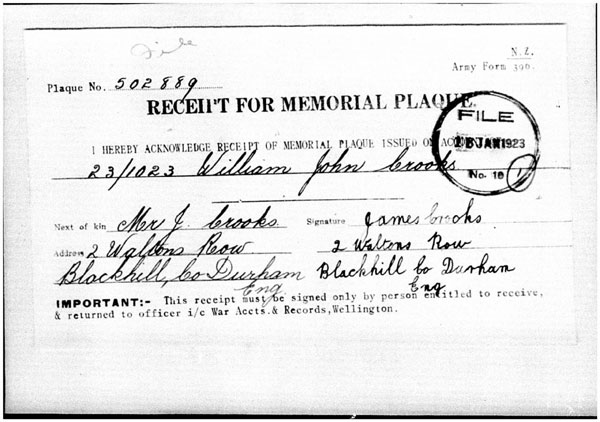 file
N.Z.
Army Form 390.
Plaque No. 502889
RECEIPT FOR MEMORIAL PLAQUE.
FILE
JAN 1923
No. 10
1
I HEREBY ACKNOWLEDGE RECEIPT OF MEMORIAL PLAQUE ISSUED ON
23/1023 William John Crooks
Next of kin Mr J. Crooks Signature James Crooks
Address 2 Waltons Row 2 Waltons Row
Blackhill, Co Durham Blackhill Co Durham
Eng Eng
IMPORTANT:- This receipt must be signed only by person entitled to receive,
& returned to officer i/c War Accts. & Records, Wellington.